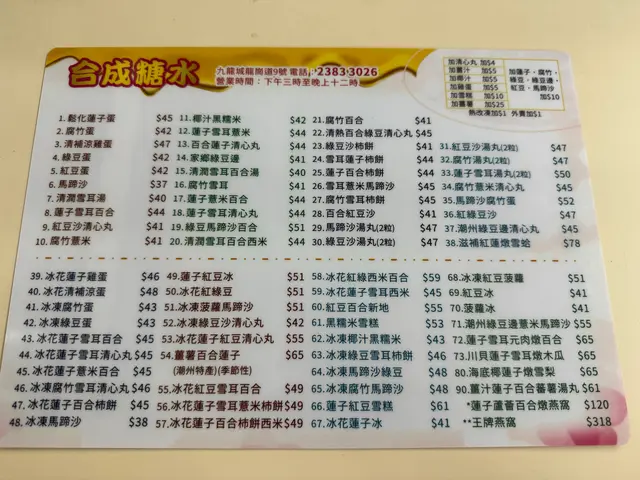 合成糖水
九龍城龍崗道9號 電話:2383 3026
營業時間:下午三時至晚上十二時
加清心丸 加$4
加薑汁 加$5
加椰汁 加$5
加雞蛋 加$5
加雪糕 加$10
加薑薯 加$25
加蓮子.腐竹.
綠豆.綠豆邊.
紅豆.馬蹄沙
加$10
熱改凍加$1 外賣加$1
1. 鬆化蓮子蛋 $45
2. 腐竹蛋 $42
3. 清補涼雞蛋 $47
4. 綠豆蛋 $42
5. 紅豆蛋 $42
6. 馬蹄沙 $37
7. 清潤雪耳湯 $40
8. 蓮子雪耳百合 $44
9. 紅豆沙清心丸 $41
10. 腐竹薏米 $41
11. 椰汁黑糯米 $42
12. 蓮子雪耳薏米 $44
13. 百合蓮子清心丸 $44
14. 家鄉綠豆邊 $41
15. 清潤雪耳百合湯 $40
16. 腐竹雪耳 $41
17. 蓮子薏米百合 $44
18. 蓮子雪耳清心丸 $44
19. 綠豆馬蹄沙百合 $51
20. 清潤雪耳百合西米 $44
21. 腐竹百合 $41
22. 清熱百合綠豆清心丸 $45
23. 綠豆沙柿餅 $41
24. 雪耳蓮子柿餅 $44
25. 蓮子百合柿餅 $44
26. 雪耳薏米馬蹄沙 $45
27. 腐竹雪耳柿餅 $45
28. 百合紅豆沙 $41
29. 馬蹄沙湯丸(2粒) $47
30. 綠豆沙湯丸(2粒) $47
31. 紅豆沙湯丸(2粒) $47
32. 腐竹沙湯丸(2粒) $47
33. 蓮子雪耳湯丸(2粒) $50
34. 腐竹薏米清心丸 $45
35. 馬蹄沙豆蛋 $52
36. 紅綠豆沙 $41
37. 潮州綠豆邊清心丸 $45
38. 滋補紅蓮燉雪蛤 $78
39. 冰花蓮子雞蛋 $46
40. 冰花清補涼蛋 $48
41. 冰凍腐竹蛋 $43
42. 冰凍綠豆蛋 $43
43. 冰花蓮子雪耳百合 $45
44. 冰花蓮子雪耳清心丸 $45
45. 冰花蓮子薏米百合 $45
46. 冰凍腐竹雪耳清心丸 $46
47. 冰花蓮子百合柿餅 $45
48. 冰凍馬蹄沙 $38
49. 蓮子紅豆冰 $51
50. 冰花紅綠豆 $51
51. 冰凍菠蘿馬蹄沙 $51
52. 冰凍綠豆沙清心丸 $42
53. 冰凍蓮子紅豆沙 $55
54. 薑薯百合蓮子 $65
(潮州特產)(季節性)
55. 冰花紅豆雪耳百合 $49
56. 冰花蓮子雪耳薏米柿餅 $49
57. 冰花蓮子百合柿餅西米 $49
58. 冰花紅綠西米百合 $59
59. 冰花蓮子雪耳西米 $45
60. 紅豆百合新地 $55
61. 黑糯米雪糕 $53
62. 冰凍椰汁黑糯米 $43
63. 冰凍綠豆雪耳柿餅 $46
64. 冰凍馬蹄沙綠豆 $48
65. 冰凍腐竹馬蹄沙 $48
66. 蓮子紅豆雪糕 $61
67. 冰花蓮子冰 $41
68. 冰凍紅豆菠蘿 $51
69. 紅豆冰 $41
70. 菠蘿冰 $41
71. 潮州綠豆邊薏米馬蹄沙 $55
72. 蓮子雪耳元肉燉百合 $65
73. 川貝蓮子雪耳燉木瓜 $65
80. 海底椰蓮子燉雪梨 $65
90. 薑汁蓮子百合蕃薯湯丸 $61
*蓮子蘆薈百合燉燕窩 $120
**王牌燕窩 $318